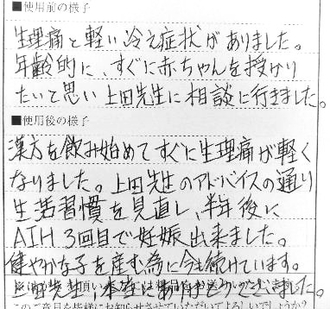 ■使用前の様子
生理痛と軽い冷え症状がありました。
年齢的に、すぐに赤ちゃんを授かり
たいと思い上田先生に相談に行きました。
■使用後の様子
漢方を飲み始めてすぐに生理痛が軽く
なりました。上田先生のアドバイスの通り
生活習慣を見直し、半年後に
AIH 3回目で妊娠出来ました。
健やかな子を産む為に今も続けています。
上田先生、本当にありがとうございました。
このご意見を皆様にお知らせさせていただいてよろしいでしょうか?